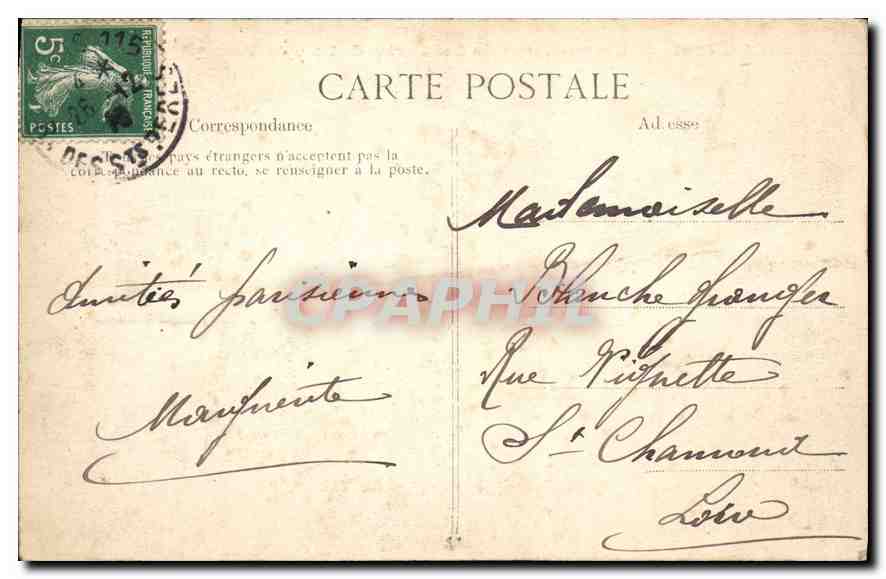 RÉPUBLIQUE FRANÇAISE
5c
POSTES
DES STS PÈRES
CARTE POSTALE
Correspondance
pays étrangers n'acceptent pas la
correspondance au recto, se renseigner à la poste.
Amitiés parisiennes
Marguerite
Adresse
Mademoiselle
Blanche Granger
Rue Vignette
St Chamond
Loire
CPAPHIL